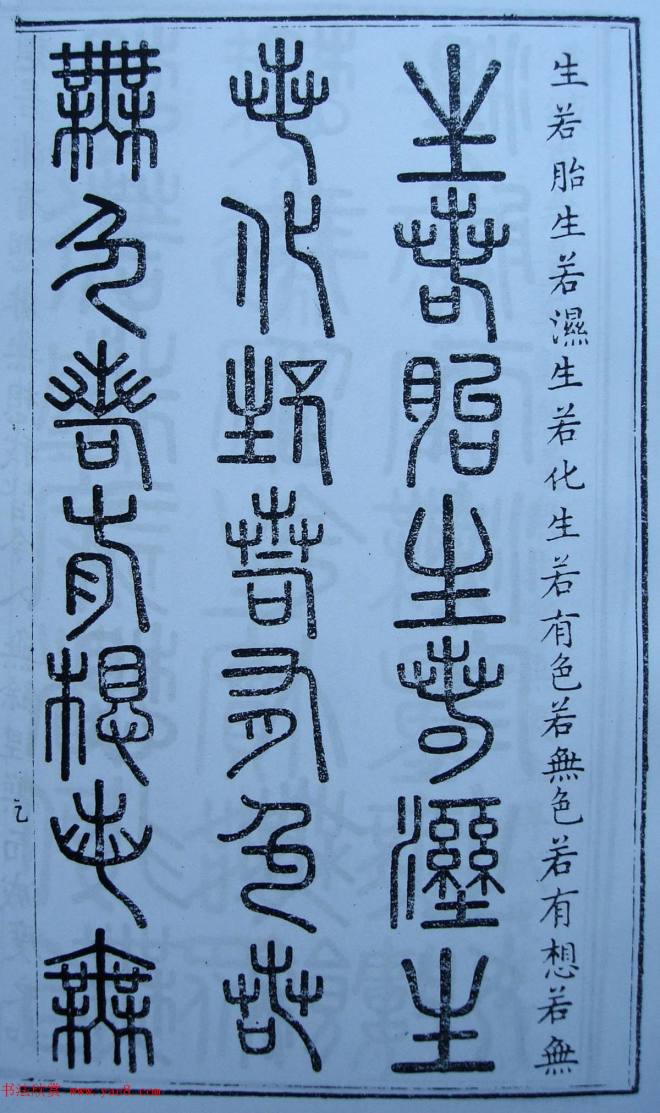 生若胎生若濕生若化生若有色若無色若有想若無
生若胎生若濕生
若化生若有色若
無色若有想若無
书法欣赏 www.yac8.com